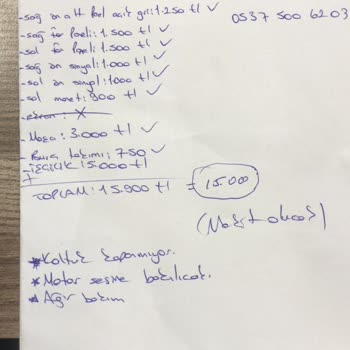 - sağ ön alt Panel açık gri: 1.250 tl ✓
0537 500 6203
- sağ far Paneli: 1.500 tl ✓
- sol far Paneli: 1.500 tl ✓
- sağ ön sinyal: 1.000 tl ✓
- sol ön sinyal: 1000 tl ✓
- sol : 900 tl ✓
- ekran: X
- Masa: 3.000 tl ✓
- takımı: 750 ✓
- İŞÇİLİK: 5.000 tl
+
TOPLAM: 15.900 tl = 15.000
(Nakit olacak)
* Koltuk kapanmıyor.
* Motor sesine bakılacak.
* Ağır bakım